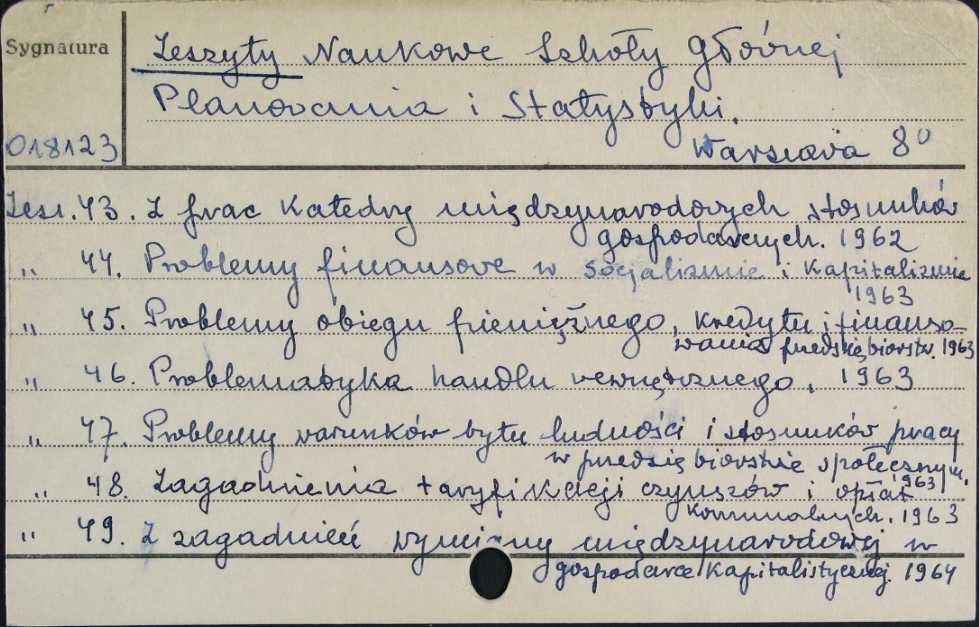 Sygnatura
Zeszyty Naukowe Szkoły Głównej
Planowania i Statystyki.
018123
Warszawa 8⁰
Zesz. 43. Z prac Katedry międzynarodowych stosunków
gospodarczych. 1962
„ 44. Problemy finansowe w socjalizmie i kapitalizmie
1963
„ 45. Problemy obiegu pieniężnego, kredytu i finanso-
wania przedsiębiorstw. 1963
„ 46. Problematyka handlu wewnętrznego. 1963
„ 47. Problemy warunków bytu ludności i stosunków pracy
w przedsiębiorstwie społecznym.
1963
„ 48. Zagadnienia taryfikacji czynszów i opłat
komunalnych. 1963
„ 49. Z zagadnień wymiany międzynarodowej w
gospodarce kapitalistycznej. 1964